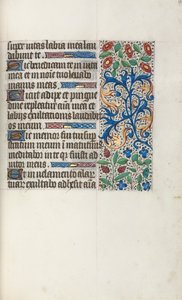 super vitas labia mea lau
dabunt te
Sic benedicam te in vita
mea et in noie tuo levabo
manus meas
Sicut adipe et pin
repleatur aia mea et
labijs exultationis laudabit
os meum
Si memor fui tui sup
stratum meum in matutinis
meditabor in te qr fuisti ad
iutor meus
Et in velamento alar
tuar exultabo adhesit aia